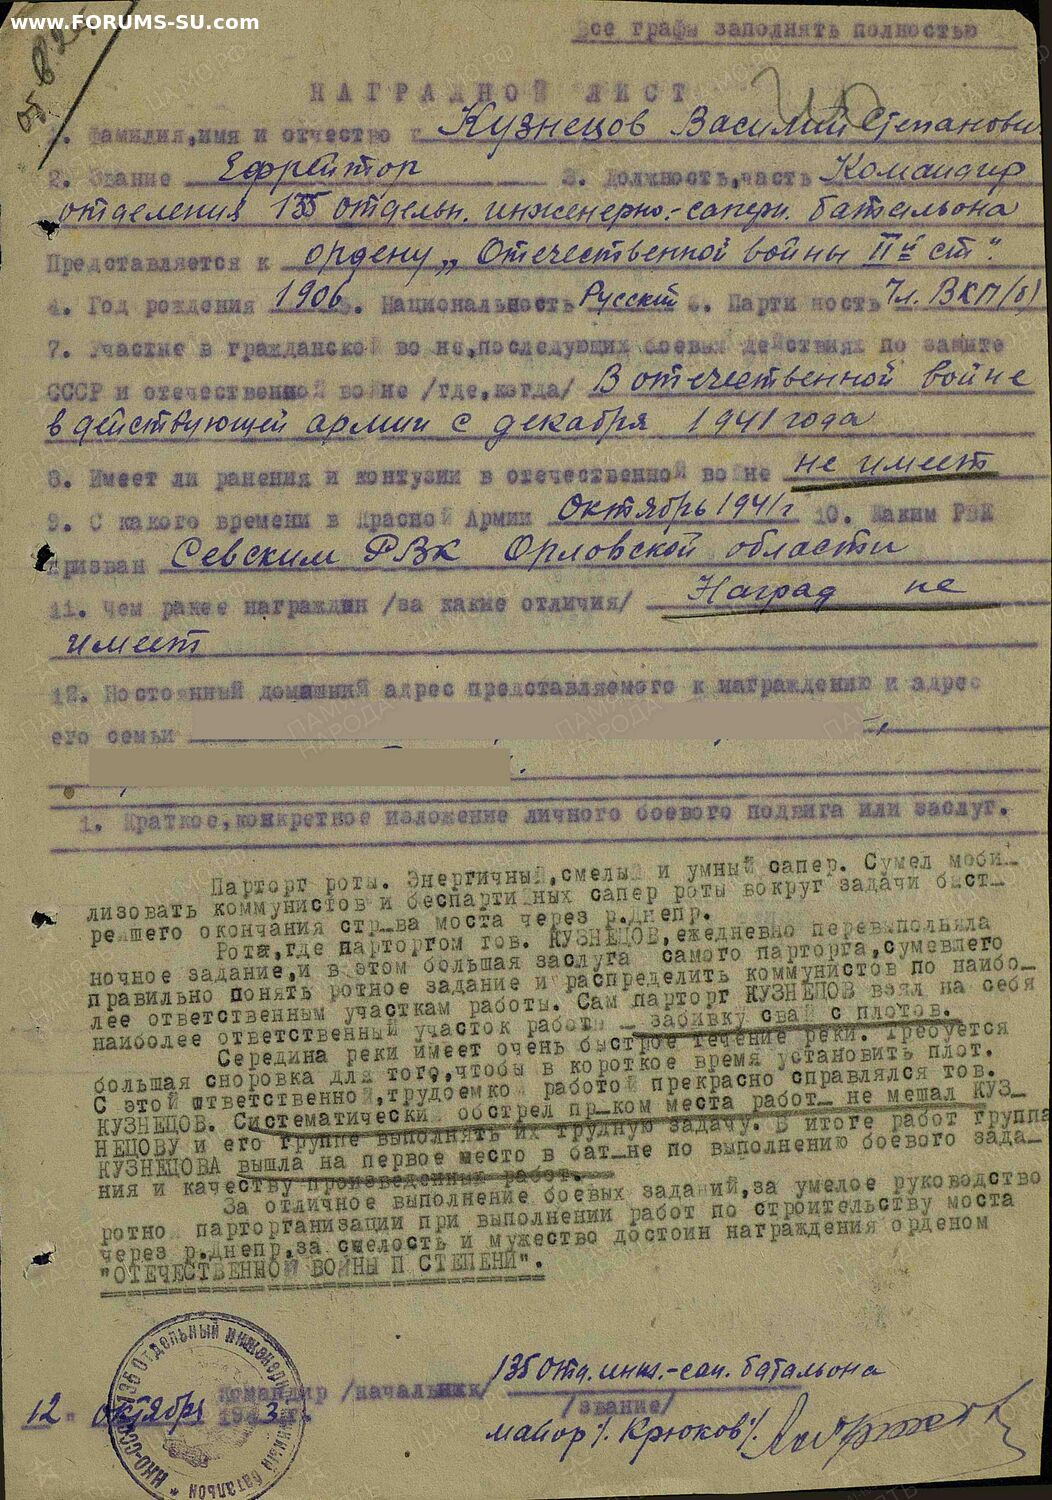 www.FORUMS-SU.com
Все графы заполнять полностью
НАГРАДНОЙ ЛИСТ
1. Фамилия,имя и отчество Кузнецов Василий Степанович
2. Звание Ефрейтор 3. Должность,часть Командир
отделения 135 отдельн. инженерно.-саперн. батальона
Представляется к ордену „Отечественной войны IIй ст".
4. Год рождения 1906 5. Национальность Русский 6. Партийность Чл. ВКП(б)
7. Участие в гражданской войне,последующих боевых действиях по защите
СССР и отечественной войне /где,когда/ В отечественной войне
в действующей армии с декабря 1941 года
8. Имеет ли ранения и контузии в отечественной войне не имеет
9. С какого времени в Красной Армии Октябрь 1941 г 10. Каким РВК
призван Севским РВК Орловской области
11. Чем ранее награжден /за какие отличия/ Наград не
имеет
12. Постоянный домашний адрес представляемого к награждению и адрес
его семьи
1. Краткое,конкретное изложение личного боевого подвига или заслуг.
Парторг роты. Энергичный,смелый и умный сапер. Сумел моби-
лизовать коммунистов и беспартийных сапер роты вокруг задачи быст-
рейшего окончания стр-ва моста через р.Днепр.
Рота,где парторгом тов. КУЗНЕЦОВ,ежедневно перевыполняла
ночное задание,и в этом большая заслуга самого парторга,сумевшего
правильно понять ротное задание и распределить коммунистов по наибо-
лее ответственным участкам работы. Сам парторг КУЗНЕЦОВ взял на себя
наиболее ответственный участок работы - забивку свай с плотов.
Середина реки имеет очень быстрое течение реки. Требуется
большая сноровка для того,чтобы в короткое время установить плот.
С этой ответственной,трудоемкой работой прекрасно справлялся тов.
КУЗНЕЦОВ. Систематический обстрел пр-ком места работ- не мешал КУЗ-
НЕЦОВУ и его группе выполнять их трудную задачу. В итоге работ группа
КУЗНЕЦОВА вышла на первое место в бат-не по выполнению боевого зада-
ния и качеству произведенных работ.
За отличное выполнение боевых заданий,за умелое руководство
ротной парторганизации при выполнении работ по строительству моста
через р.Днепр,за смелость и мужество достоин награждения орденом
"ОТЕЧЕСТВЕННОЙ ВОЙНЫ П СТЕПЕНИ".
135 отд. инж.-сап. батальона
Командир /начальник/
/звание/
12" октября 1943 г.
майор /. Крюков/.
НКО-СССР 135 Отдельный инженерный батальон